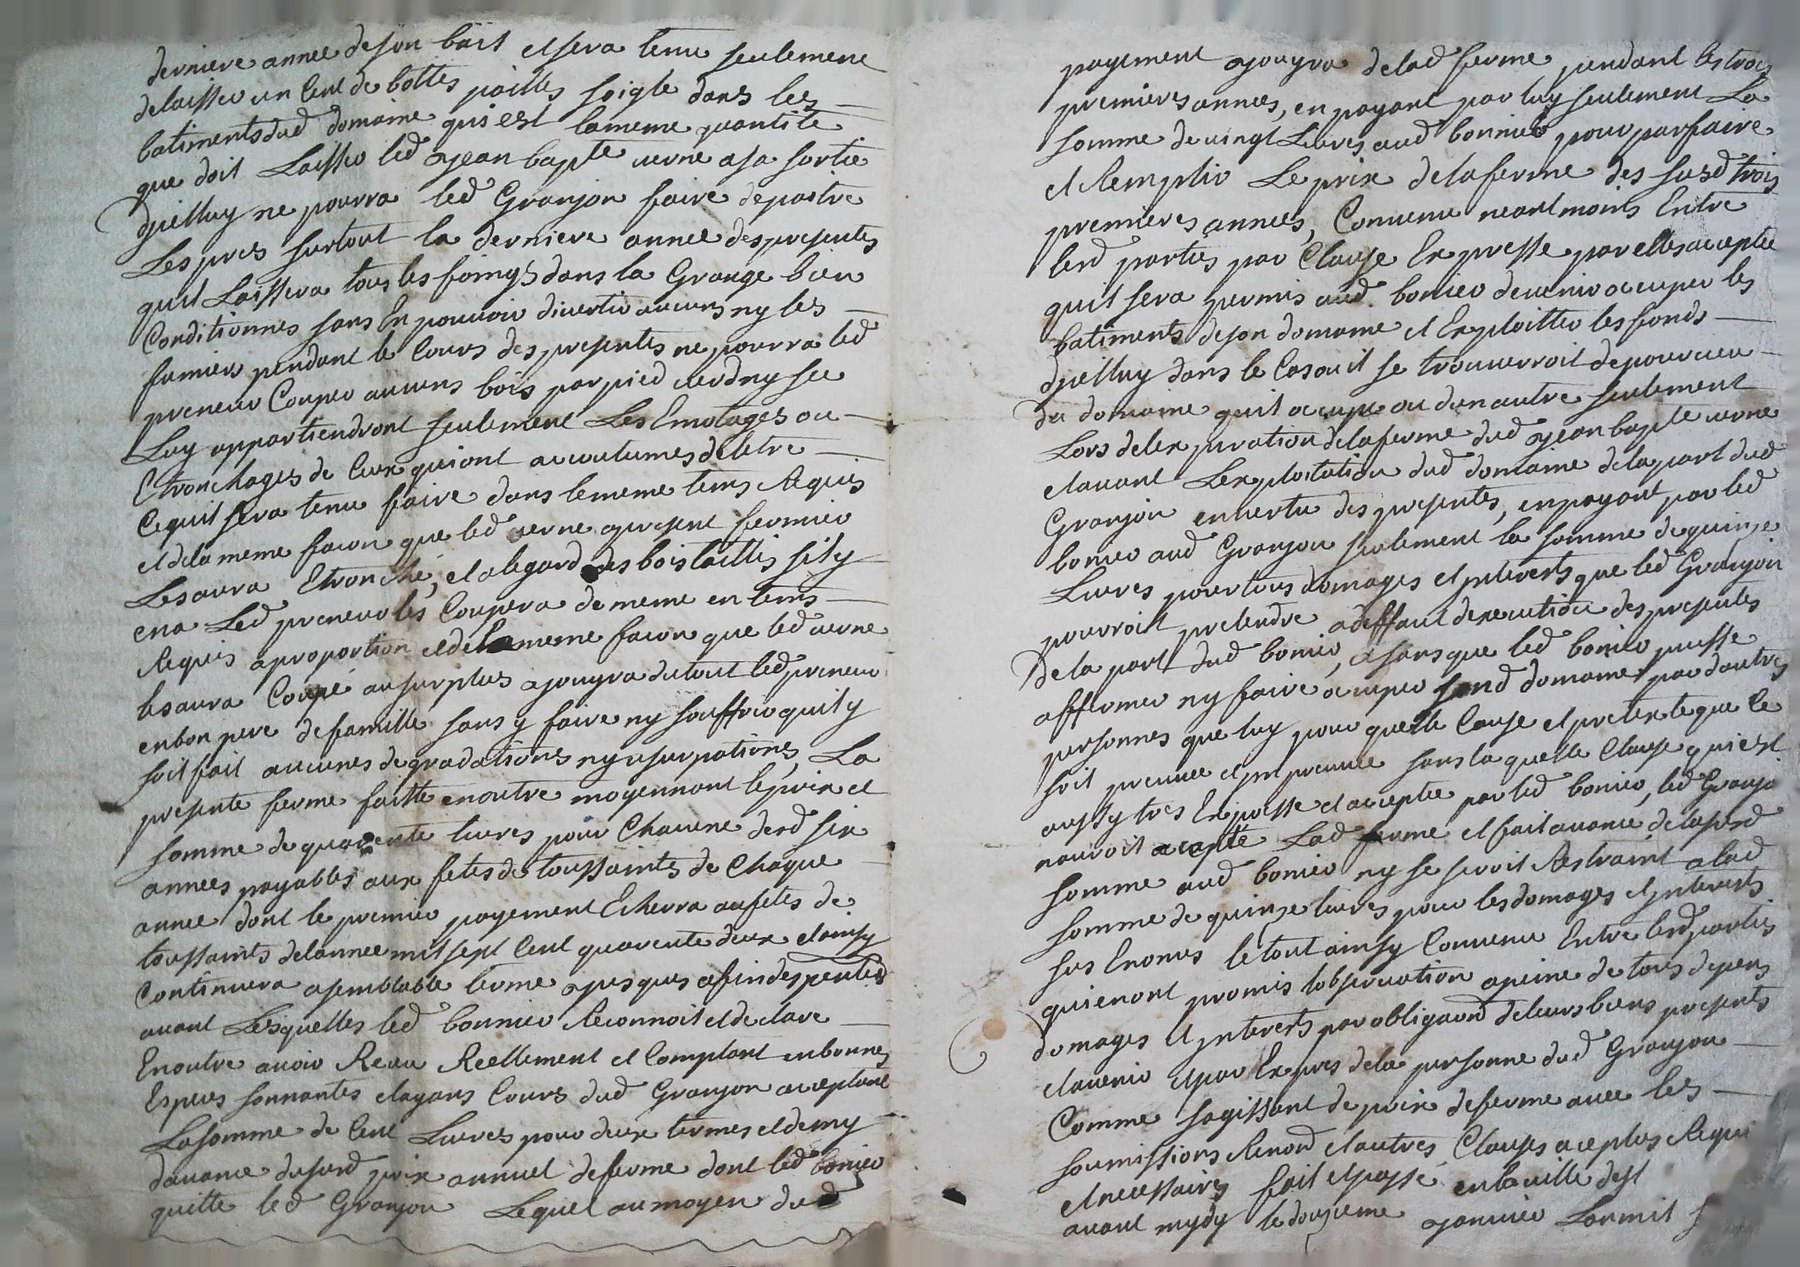 derniere annee de son bail et sera tenu seulement
delaisser un Cent de bottes pailles soigle dans les
batiments dud domaine qui est la meme quantite
que doit Laisser led Jean bapte verne a sa sortie
d'jcelluy ne pourra led Granjon faire depaitre
Les pres surtout la derniere annee des presentes
quil Laissera tous les foings dans la Grange bien
Conditionnes sans En pouvoir divertir aucuns ny les
fumiers pendant le Cours des presentes ne pourra led
preneur Couper aucuns bois par pied verd ny sec
Luy appartiendront seulement Les Emotages ou
Etronchages de Ceux qui ont accoutumes de letre
Ce quil sera tenu faire dans le meme tems Requis
et de la meme facon que led verne a present fermier
Les aura Etronché, et a legard des bois taillis sil y
en a Led preneur les Coupera de meme en tems
Requis a proportion et de la meme facon que led verne
les aura Coupé au surplus jouyra du tout led preneur
en bon pere de famille sans y faire ny souffrir quil y
soit fait aucunes degradations ny usurpations, La
presente ferme faitte en outre moyennant le prix et
somme de quarente livres pour Chacune desd six
annees payables aux fetes de toussaints de Chaque
annee dont le premier payement Echerra aux fetes de
toussaints de lannee mil sept Cent quarente deux et ainsy
Continuera a semblable terme jusques a fin des presentes
avant Lesquelles led bonnier Reconnoit et declare
En outre avoir Receu Reellement et Comptant en bonnes
Especes sonnantes et ayans Cours dud Granjon aceptant
La somme de Cent Livres pour deux termes et demy
davance du susd prix annuel de ferme dont led bonier
quitte led Granjon Lequel au moyen dud
payement jouyra de lad ferme pendant les trois
premieres annees, en payant par luy seulement La
somme de vingt Livres aud bonnier pour parfaire
et Remplir Le prix de la ferme des susd trois
premieres annees, Convenu neantmoins Entre
lesd parties par Clause Expresse par elles aceptee
quil sera permis aud bonier de venir occuper les
batiments de son domaine et Exploitter les fonds
djcelluy dans le Cas ou il se trouverroit depourveu
du domaine quil occupe ou dun autre seulement
Lors de lexpiration de la ferme dud Jean bapte verne
et avant Lexploitation dud domaine de la part dud
Granjon en vertu des presentes, en payant par led
bonier aud Granjon seulement la somme de quinze
Livres pour tous domages et jnterests que led Granjon
pourroit pretendre a deffaut dexecution des presentes
De la part dud bonier, et sans que led bonier puisse
affermer ny faire occuper sond domaine par dautres
personnes que luy pour quelle Cause et pretexte que Ce
soit preveue et jmpreveue sans laquelle Clause qui est
aussy tres Expresse et aceptee par led bonier, led Granjo
nauroit acepté Lad ferme et fait avance de la susd
somme aud bonier ny se seroit Restraint a lad
somme de quinze livres pour les domages et jnterests
sus Enonces le tout ainsy Convenu Entre lesd parties
qui en ont promis lobservation a peine de tous depens
domages et jnterests par obligaond de leurs biens presents
et avenir et par Expres de la personne dud Granjon
Comme sagissant de prix de ferme avec les
soumissions Renond et autres Clauses a ce plus Requi
et necessaires fait et passé en la ville de st
avant mydy le douzieme janvier Lan mil s